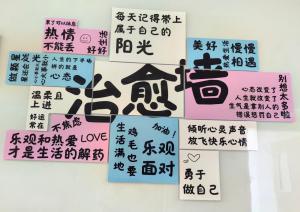 累了可以休息
热情
不能丢
好好
每天记得带上
属于自己的
阳光
美好
慢慢
相遇
人生的下半场
拼的就是
心态
治愈墙
别想太多啦
心态改变了
人生就改变了
生气是拿别人的
错误惩罚自己
温柔且
上进
好运常在
不焦虑
乐观和热爱
LOVE
才是生活的解药
生活满地
鸡毛也要
加油!
乐观
面对
倾听心灵声音
放飞快乐心情
勇于
做自己